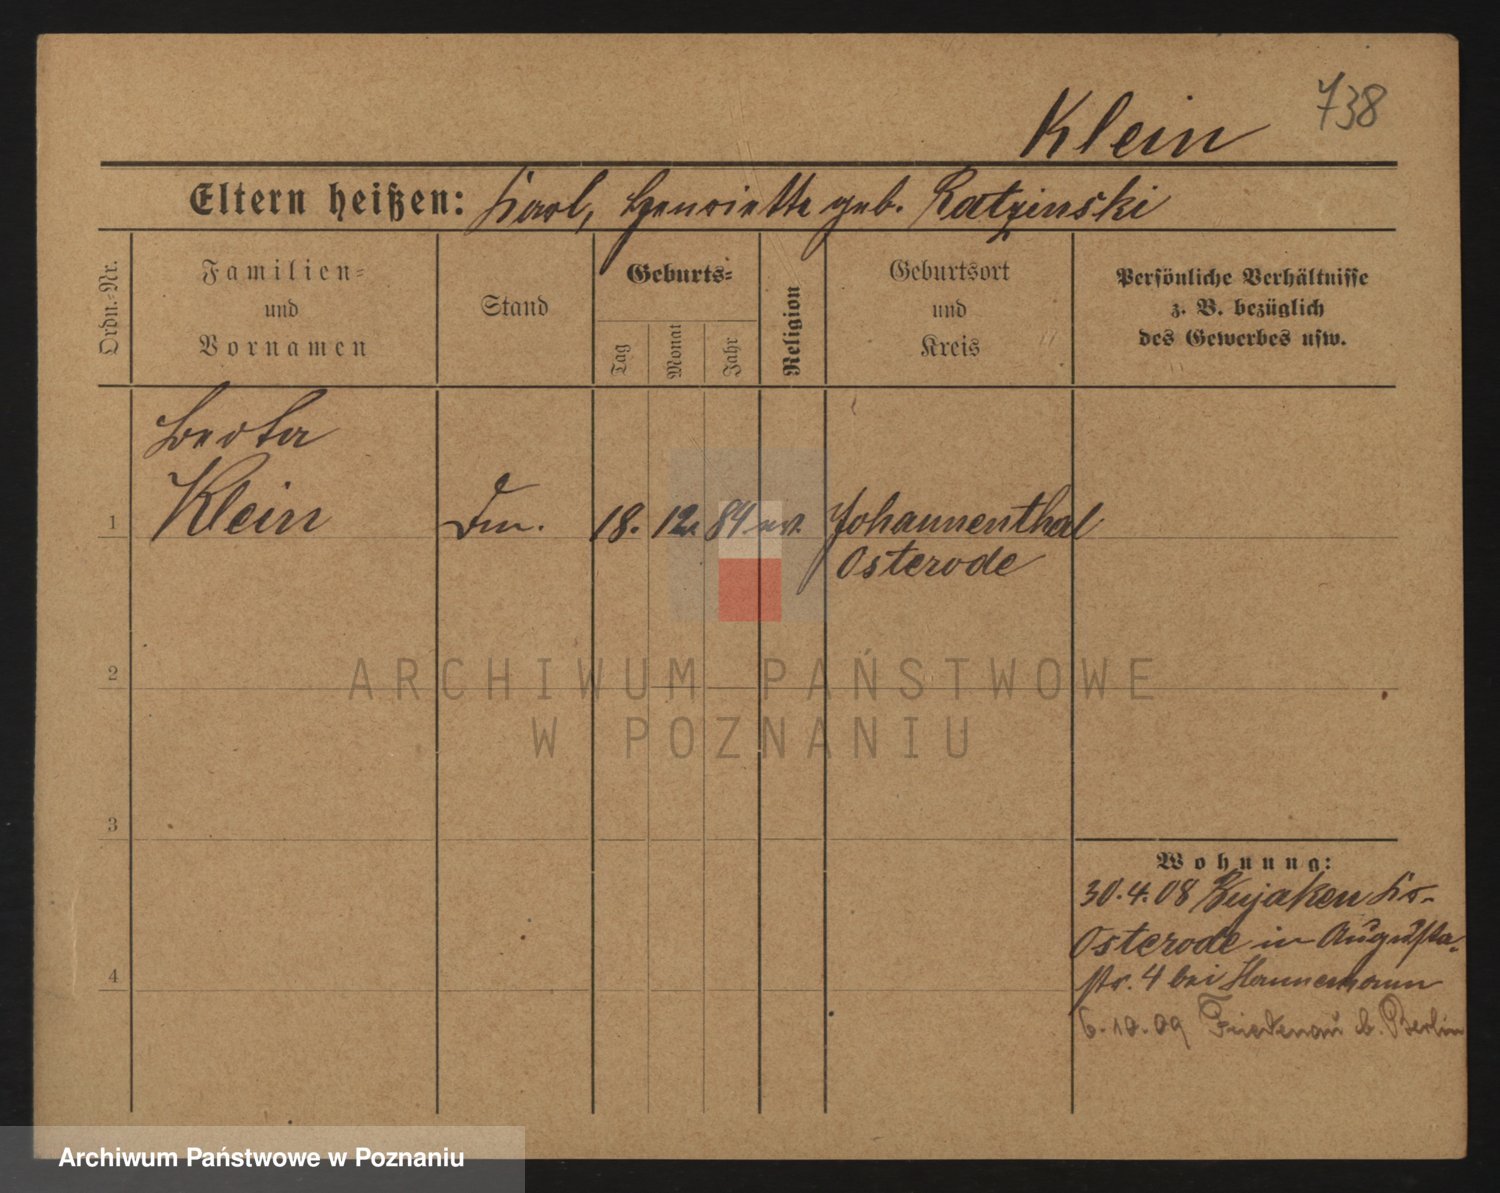 738
Klein
Eltern heißen: Karl, Henriette geb. Ratzinski
Ordn.-Nr.
Familien-
und
Vornamen
Stand
Geburts-
Tag
Monat
Jahr
Religion
Geburtsort
und
Kreis
Persönliche Verhältnisse
z. B. bezüglich
des Gewerbes usw.
Berta
1 Klein 18. 12. 84 ev. Johannenthal
Osterode
2
3
4
Wohnung:
30.4.08 Kujaken Kr.
Osterode in Augusta-
str. 4 bei Hannemann
6.10.09 Friedenau b. Berlin
ARCHIWUM PAŃSTWOWE
W POZNANIU
Archiwum Państwowe w Poznaniu